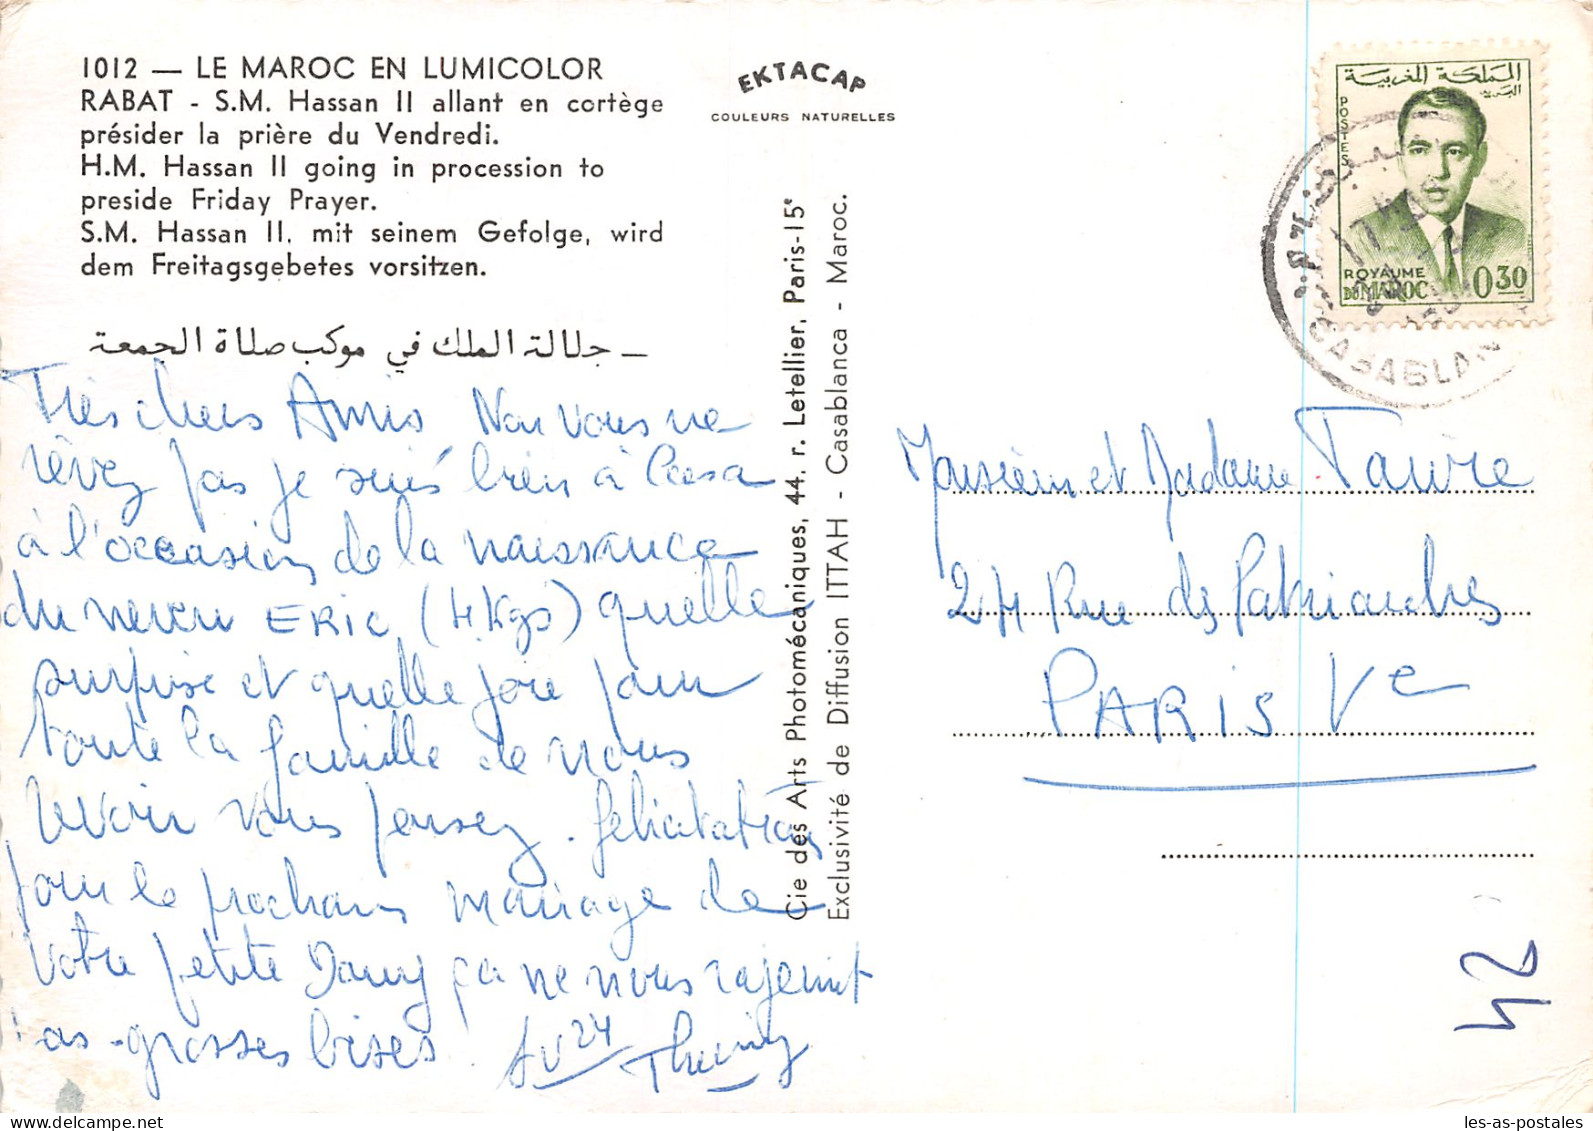 1012 — LE MAROC EN LUMICOLOR
RABAT - S.M. Hassan II allant en cortège
présider la prière du Vendredi.
H.M. Hassan II going in procession to
preside Friday Prayer.
S.M. Hassan II, mit seinem Gefolge, wird
dem Freitagsgebetes vorsitzen.
جلالة الملك في موكب صلاة الجمعة —
EKTACAP
COULEURS NATURELLES
المملكة المغربية
البريد
POSTES
ROYAUME
DU MAROC 0,30
CASABLAN
Très chers Amis Non vous ne
rêvez pas je suis bien à Casa
à l'occasion de la naissance
du neveu ERIC (4 Kgs) quelle
surprise et quelle joie pour
toute la famille de nous
revoir vous pensez. félicitations
pour le prochain mariage de
votre petite Dany ça ne nous rajeunit
pas - grosses bises.
Cie des Arts Photomécaniques, 44, r. Letellier, Paris-15e
Exclusivité de Diffusion ITTAH - Casablanca - Maroc.
Monsieur et Madame Favre
24 Rue des Patriarches
PARIS Ve
42
les-as-postales